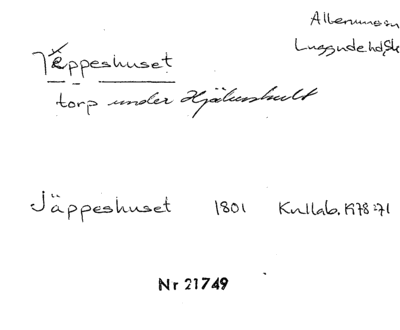 Allerums sn
Luggude hd, Sk
Jäppeshuset
torp under Hjälmshult
Jäppeshuset 1801 Kullab. 1978:71
Nr 21749